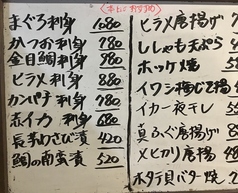 まぐろ刺身 1080
かつお刺身 780
金目鯛刺身 980
ヒラメ刺身 880
カンパチ刺身 780
ホイカ刺身 680
長芋わさび漬 420
鯛の南蛮漬 520
ヒラメ唐揚げ
ししゃも天ぷら
ホッケ焼
イワシ梅しそ揚
イカ一夜干し
真ふぐ唐揚げ
メヒカリ唐揚
ホタテ貝バター焼